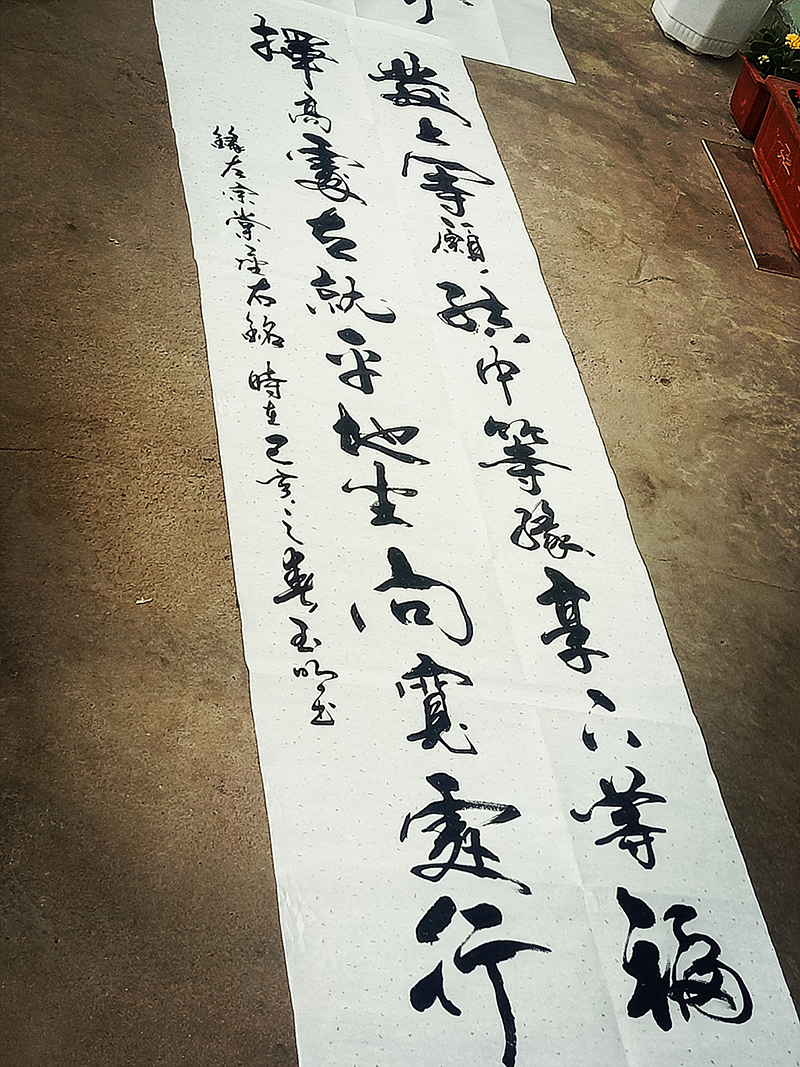 發上等願結中等緣享下等福
擇高處立就平地坐向寬處行
錄左宗棠座右銘 時在己亥之春玉明书